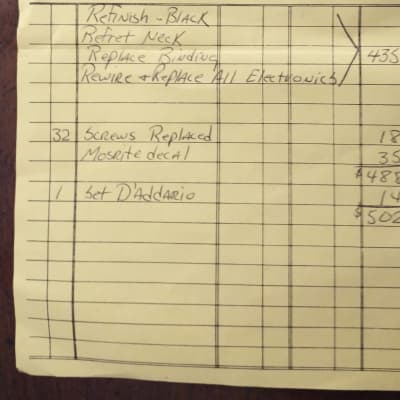 Refinish - Black
Refret Neck
Replace Binding 435
Rewire + Replace All Electronics
32 Screws Replaced 18
Mosrite decal 35
$488
1 Set D'Addario 14
$502